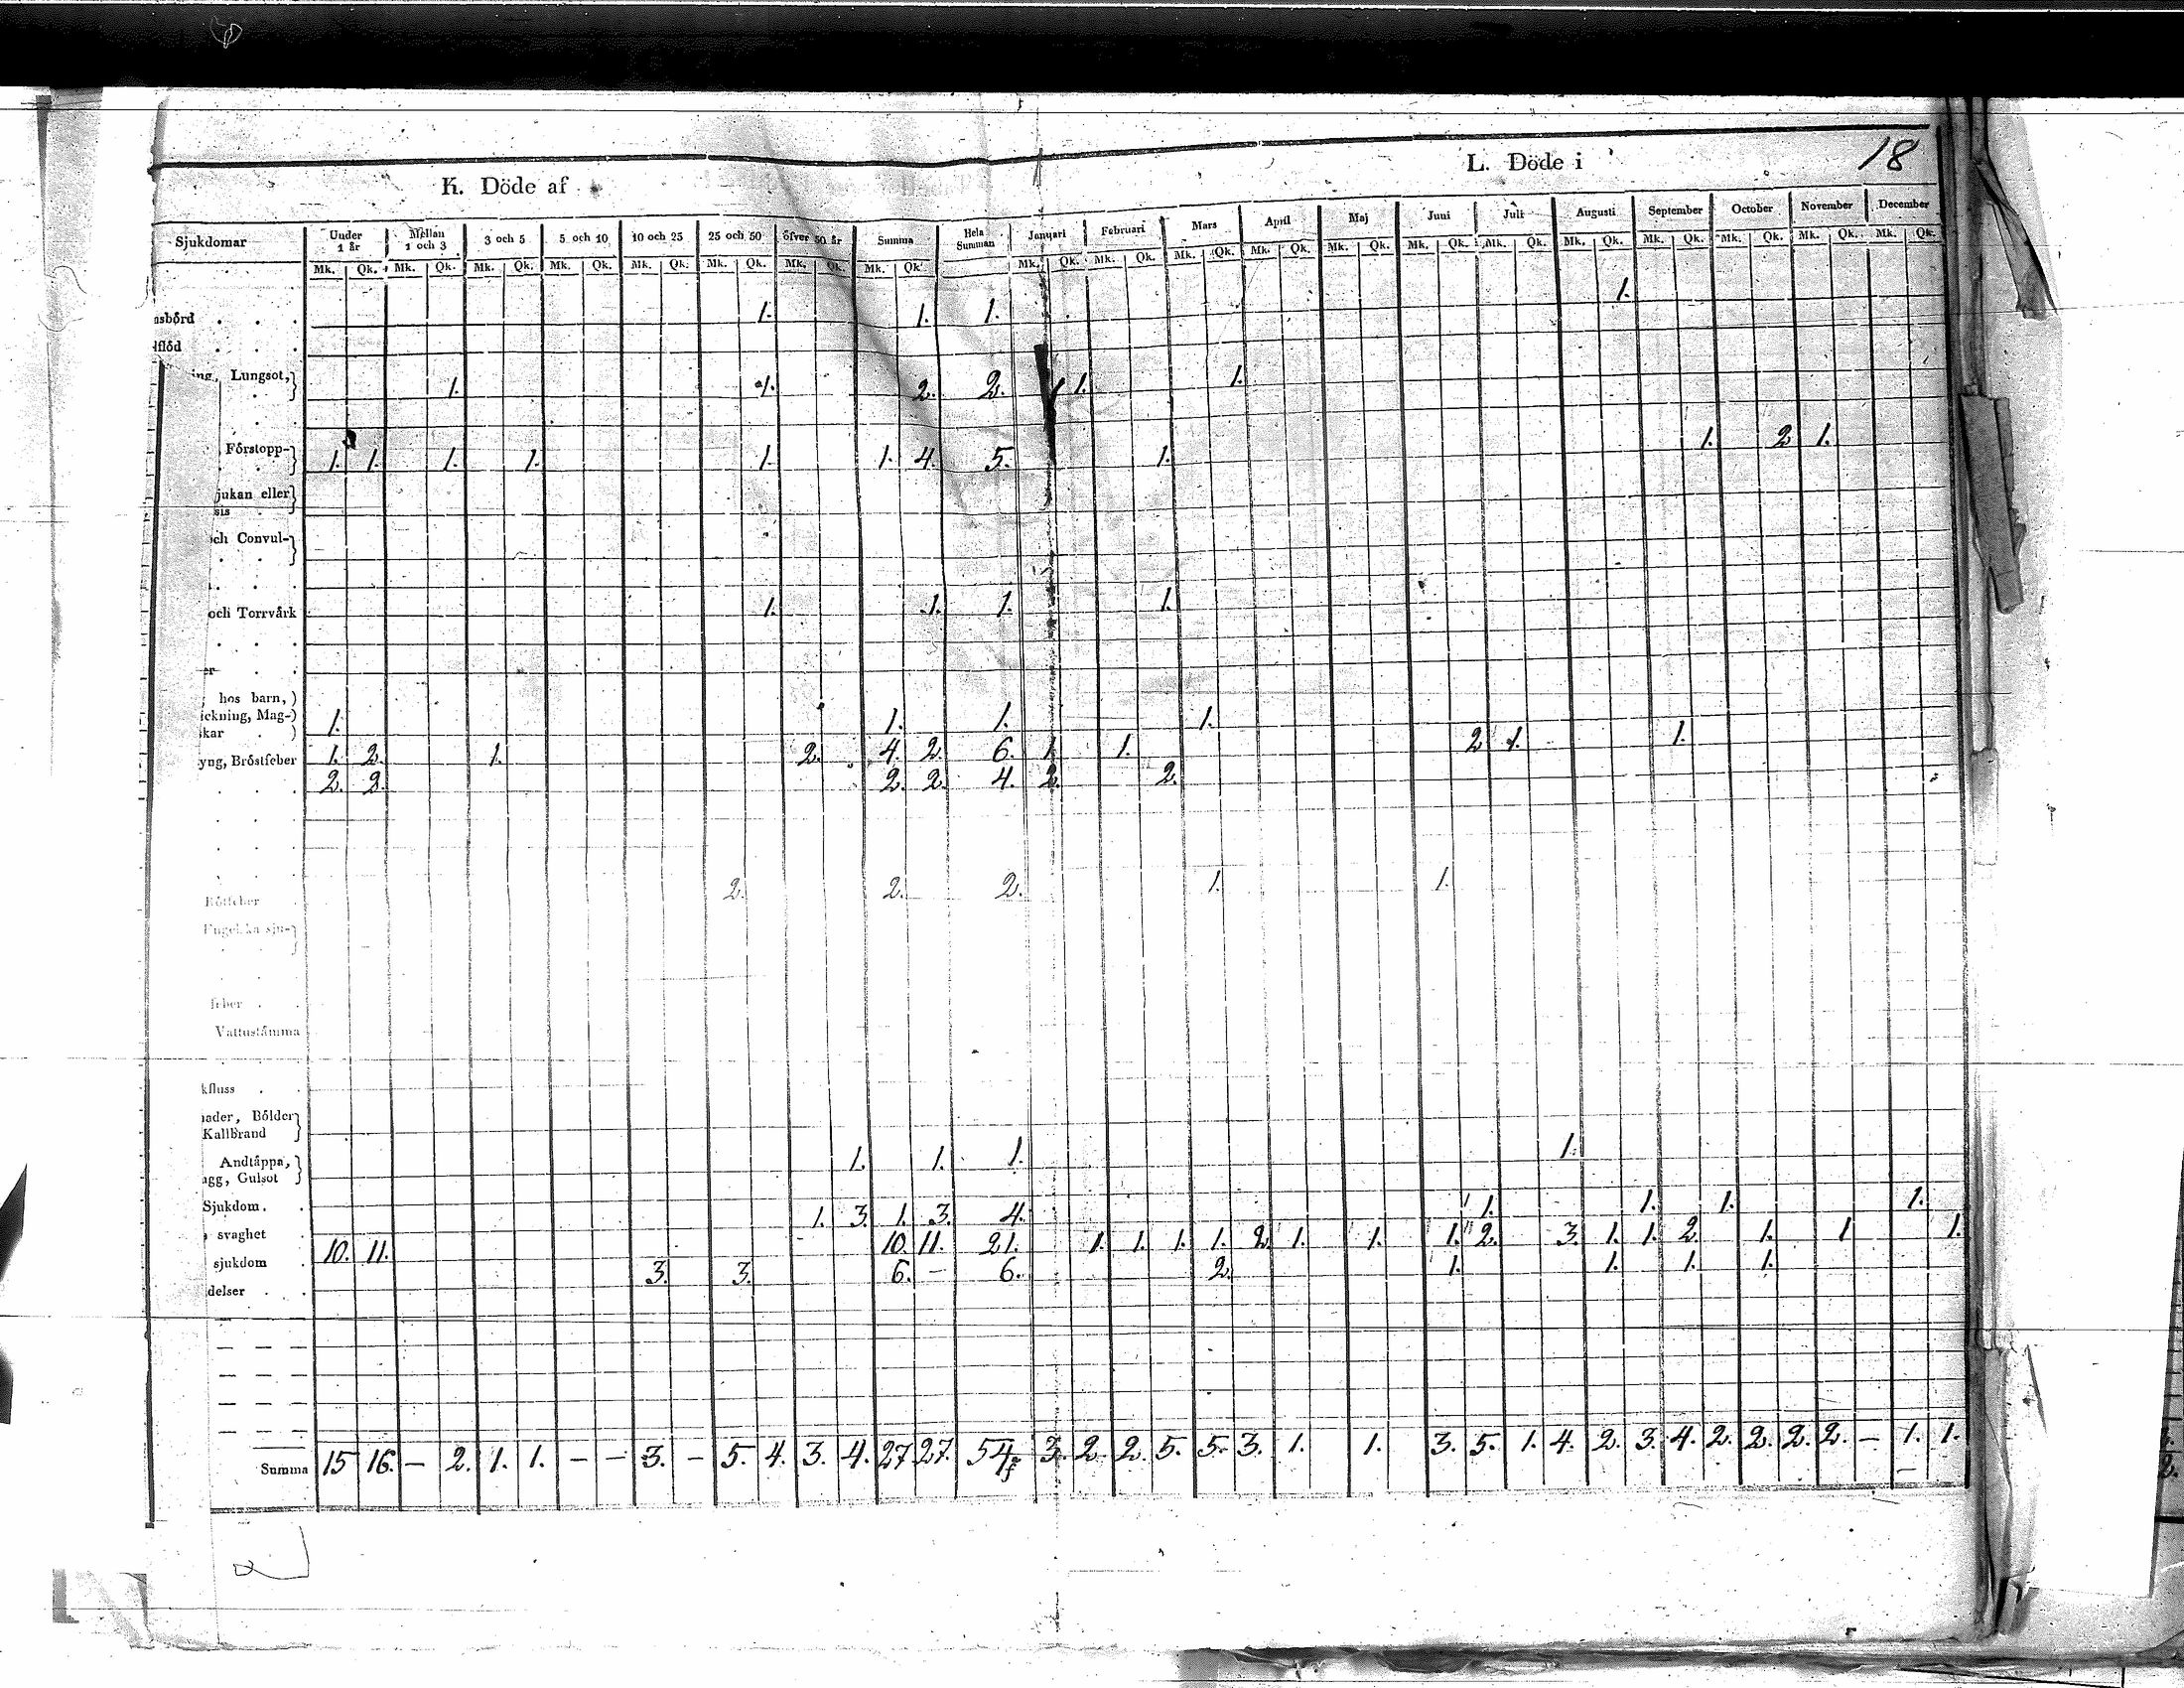 18
K. Döde af
L. Döde i
Sjukdomar Under 1 år Mellan 1 och 3 3 och 5 5 och 10 10 och 25 25 och 50 öfver 50 år Summa Hela Summan Januari Februari Mars April Maj Juni Juli Augusti September October November December
Mk. Qk. Mk. Qk. Mk. Qk. Mk. Qk. Mk. Qk. Mk. Qk. Mk. Qk. Mk. Qk. Mk. Qk. Mk. Qk. Mk. Qk. Mk. Qk. Mk. Qk. Mk. Qk. Mk. Qk. Mk. Qk. Mk. Qk. Mk. Qk. Mk. Qk. Mk. Qk.
nsbörd . . . 1. 1. 1. 1.
dflöd . . .
ing, Lungsot, 1. 1. 2. 2. 1. 1.
Förstopp- 1. 1. 1. 1. 1. 1. 4. 5. 1. 1. 2 1.
jukan eller
sis
och Convul-
och Torrvärk 1. 1. 1. 1.
er
hos barn,
ickning, Mag-
skar . 1. 1. 1. 1.
yng, Bröstfeber 1. 2. 1. 2. 4. 2. 6. 1. 1. 2 1. 1.
2. 2. 2. 2. 4. 2. 2.
Rötfeber 2. 2. 2. 1. 1.
Engelska sju-
feber . .
Vattustämma
kfluss . .
nader, Bölder
Kallbrand
Andtäppa,
agg, Gulsot 1. 1. 1. 1.
Sjukdom. . 1. 3. 1. 3. 4. 1. 1. 1. 1.
svaghet . 10. 11. 10. 11. 21. 1. 1. 1. 1. 2. 1. 1. 1. 2. 3. 1. 1. 2. 1. 1 1.
sjukdom . 3. 3. 6. - 6. 2. 1. 1. 1. 1.
delser . .
— — —
— — —
— — —
— — —
Summa 15 16. - 2. 1. 1. - - 3. - 5. 4. 3. 4. 27 27. 54. 3. 2. 2. 5. 5. 3. 1. 1. 3. 5. 1. 4. 2. 3. 4. 2. 2. 2. 2. - 1. 1.